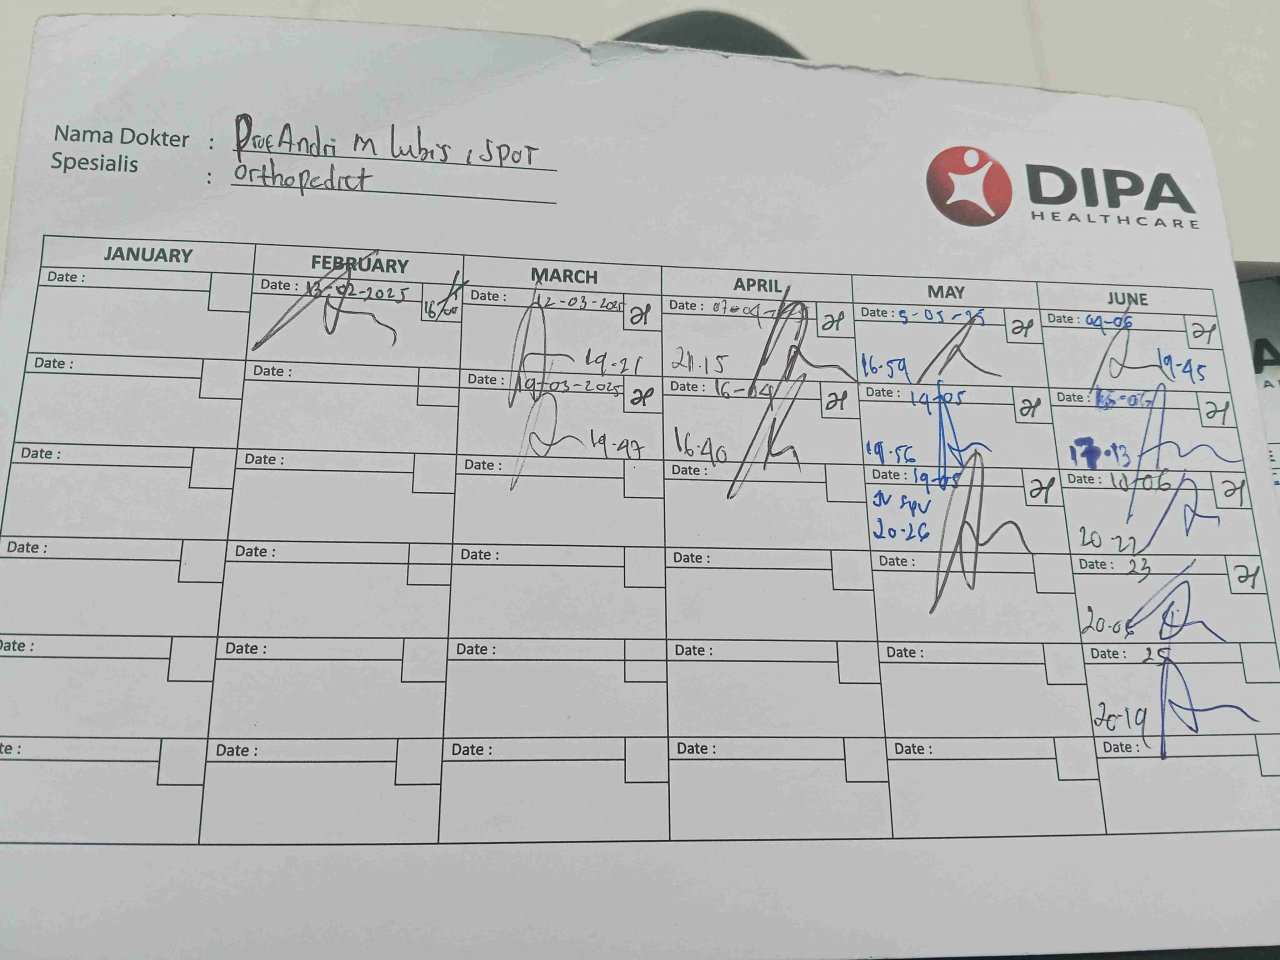 Nama Dokter : Prof Andri M Lubis, SPOT
Spesialis : Orthopedict
DIPA
HEALTHCARE
JANUARY FEBRUARY MARCH APRIL MAY JUNE
Date : Date : 13-02-2025 Date : 12-03-2025 Date : 07-04 Date : 5-05-25 Date : 04-06
16/00
19-21 21.15 16-59 19-45
Date : Date : Date : 19-03-2025 Date : 16-04 Date : 14-05 Date : -06
19-47 16-40 19-56 17.13
Date : Date : Date : Date : Date : 19-05 Date : 18-06
JV Spv
20-26 20-22
Date : Date : Date : Date : Date : Date : 23
20-05
Date : Date : Date : Date : Date : Date : 25
20-19
Date : Date : Date : Date : Date : Date :